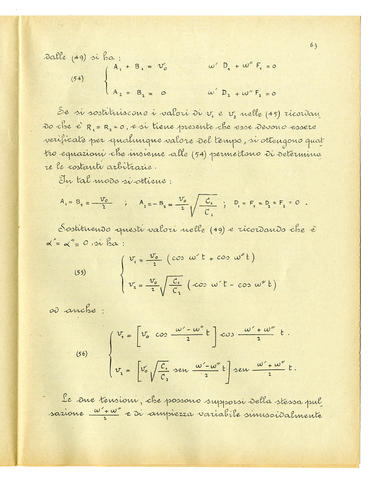 63
dalle (49) si ha:
(54) { A₁ + B₁ = V₀   ω' D₁ + ω" F₁ = 0
A₂ = B₂ = 0   ω' D₂ + ω" F₂ = 0
Se si sostituiscono i valori di v₁ e v₂ nelle (45) ricordan
do che è R₁ = R₂ = 0, e si tiene presente che esse devono essere
verificate per qualunque valore del tempo, si ottengono quat
tro equazioni che insieme alle (54) permettono di determina
re le costanti arbitrarie.
In tal modo si ottiene:
A₁ = B₁ = V₀/2 ; A₂ = - B₂ = V₀/2 √(C₁/C₂) ; D₁ = F₁ = D₂ = F₂ = 0 .
Sostituendo questi valori nelle (49) e ricordando che è
α' = α" = 0, si ha:
(55) { v₁ = V₀/2 (cos ω't + cos ω"t)
v₂ = V₀/2 √(C₁/C₂) (cos ω't - cos ω"t)
od anche:
(56) { v₁ = [V₀ cos (ω'-ω")/2 t] cos (ω'+ω")/2 t .
v₂ = [V₀ √(C₁/C₂) sen (ω'-ω")/2 t] sen (ω'+ω")/2 t .
Le due tensioni, che possono supporsi della stessa pul
sazione (ω'+ω")/2 e di ampiezza variabile sinusoidalmente